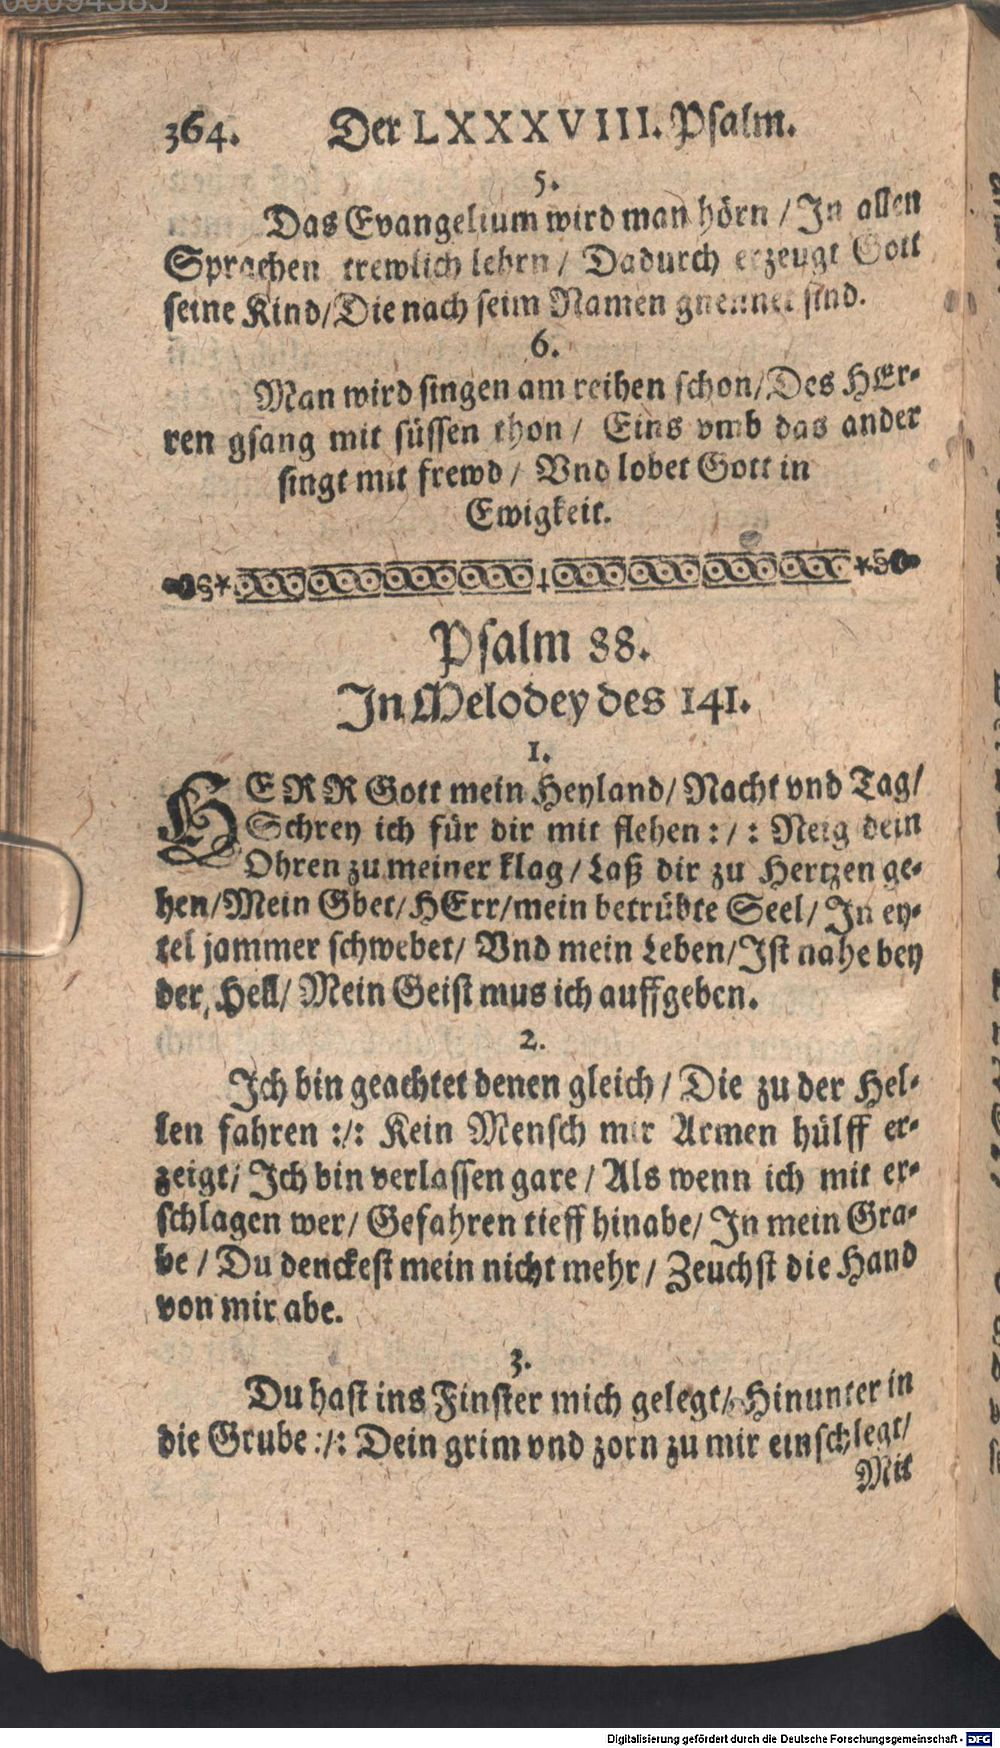 00094585
364. Der LXXXVIII. Psalm.
5.
Das Evangelium wird man hörn / In allen
Sprachen trewlich lehrn / Dadurch erzeugt Gott
seine Kind / Die nach seim Namen gnennet sind.
6.
Man wird singen am reihen schon / Des HEr-
ren gsang mit süssen thon / Eins vmb das ander
singt mit frewd / Vnd lobet Gott in
Ewigkeit.
Psalm 88.
In Melodey des 141.
1.
HERR Gott mein Heyland / Nacht vnd Tag /
Schrey ich für dir mit flehen :/: Neig dein
Ohren zu meiner klag / Laß dir zu Hertzen ge-
hen / Mein Gbet / HErr / mein betrübte Seel / In ey-
tel jammer schwebet / Vnd mein Leben / Ist nahe bey
der Hell / Mein Geist mus ich auffgeben.
2.
Ich bin geachtet denen gleich / Die zu der Hel-
len fahren :/: Kein Mensch mir Armen hülff er-
zeigt / Ich bin verlassen gare / Als wenn ich mit er-
schlagen wer / Gefahren tieff hinabe / In mein Gra-
be / Du denckest mein nicht mehr / Zeuchst die Hand
von mir abe.
3.
Du hast ins Finster mich gelegt / Hinunter in
die Grube :/: Dein grim vnd zorn zu mir einschlegt /
Mit
Digitalisierung gefördert durch die Deutsche Forschungsgemeinschaft - DFG